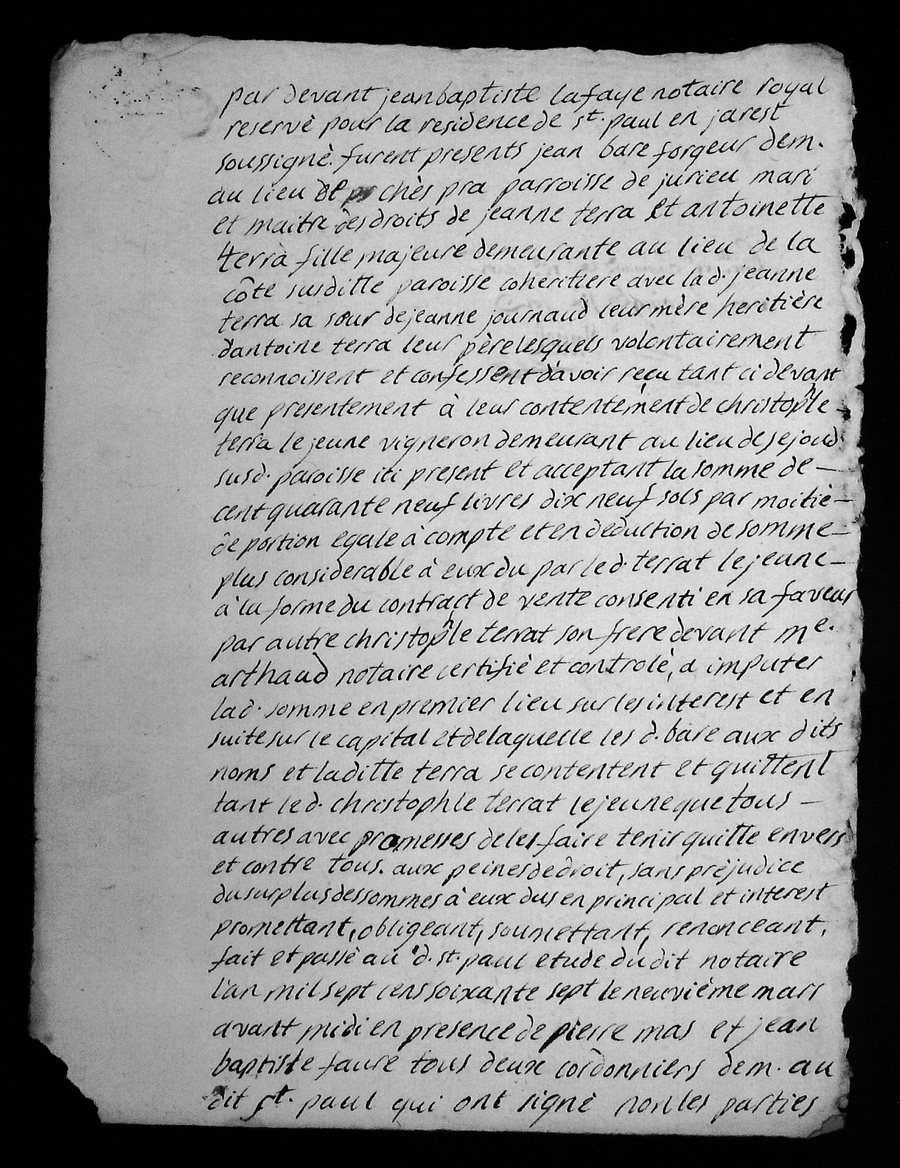 par devant jean baptiste lafaye notaire royal
reservé pour la residence de st. paul en jarest
soussigné. furent presents jean bare forgeur dem.
au lieu de chès pra parroisse de jurieu mari
et maitre des droits de jeanne terra et antoinette
terra fille majeure demeurante au lieu de la
côte susditte paroisse coheritiere avec lad. jeanne
terra sa sœur de jeanne journaud leur mère heritière
dantoine terra leur père lesquels volontairement
reconnoissent et confessent davoir reçu tant ci devant
que presentement à leur contentement de christophle -
terra le jeune vigneron demeurant au lieu de sejoud.
susd. paroisse iti present et acceptant la somme de -
cent quarante neuf livres dix neuf sols par moitié -
de portion egale à compte et en deduction de somme -
plus considerable à eux du par le d. terrat le jeune -
à la forme du contract de vente consenti en sa faveur
par autre christophle terrat son frere devant me.
arthaud notaire certifié et controlé, a imputer
lad. somme en premier lieu sur les interest et en
suite sur le capital et de laquelle les d. bare aux dits
noms et laditte terra se contentent et quittent
tant le d. christophle terrat le jeune que tous -
autres avec promesses de les faire tenir quitte envers
et contre tous. aux peines de droit, sans préjudice
du surplus des sommes à eux dus en principal et interest
promettant, obligeant, soumettant, renonceant,
fait et passé au d. st. paul etude du dit notaire
l'an mil sept cens soixante sept le neuvième mars
avant midi en presence de pierre mas et jean
baptiste faure tous deux cordonniers dem. au
dit st. paul qui ont signé non les parties